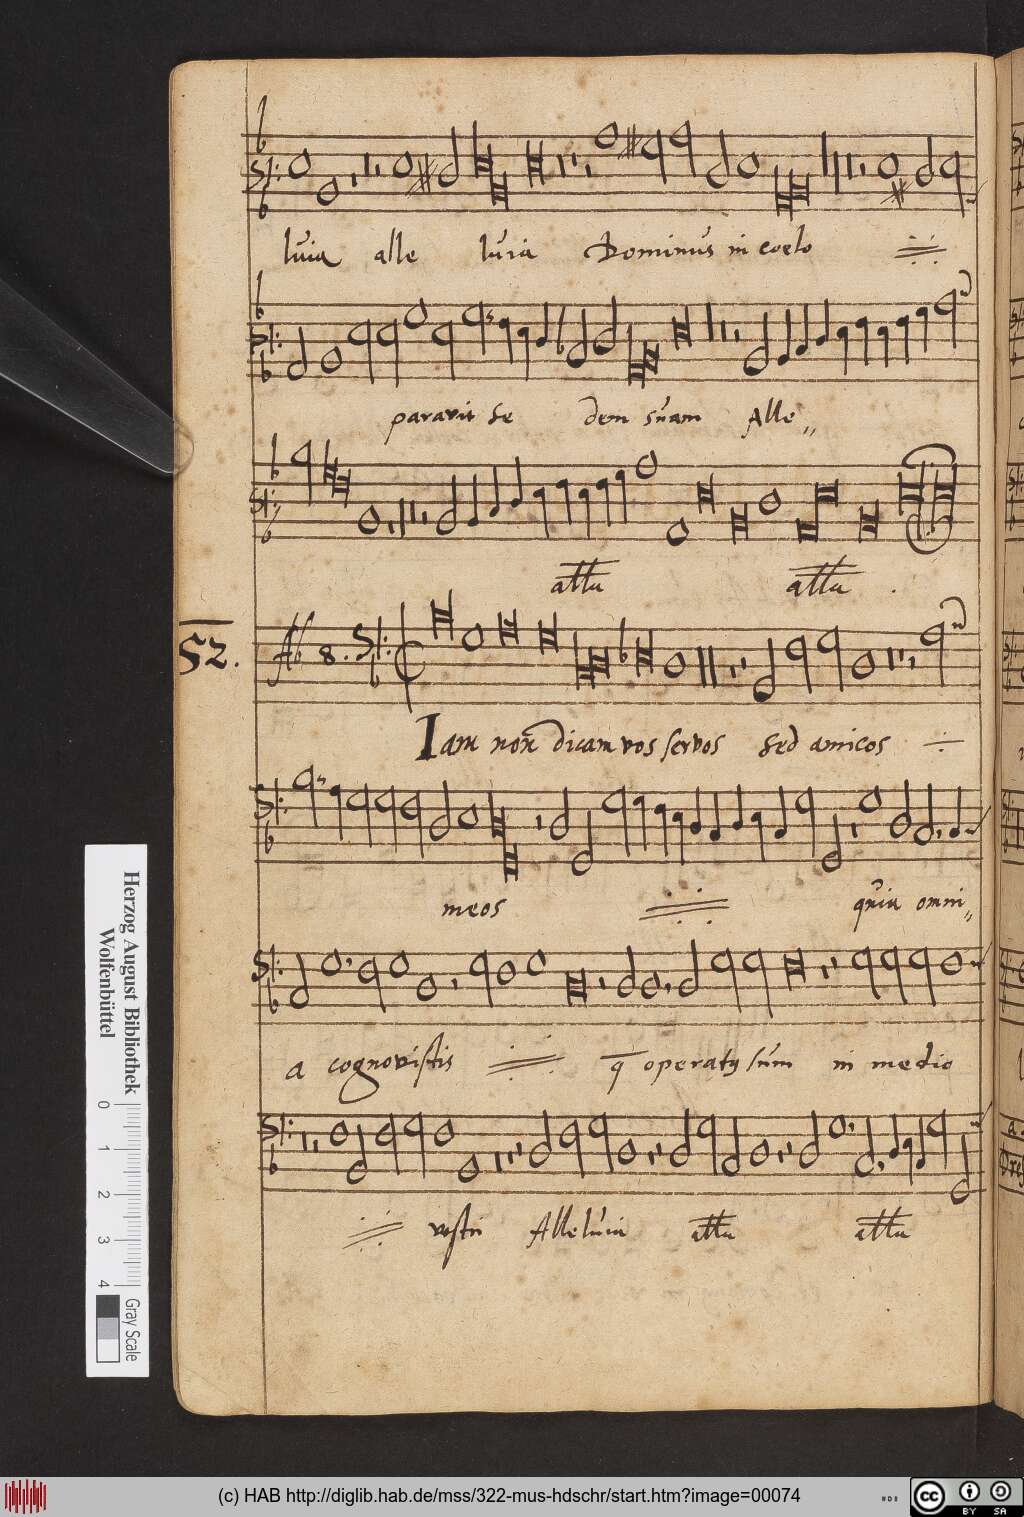 luia alle luia Dominus in coelo
paravit se dem suam Alle
alla alla .
52. Ab 8.
Iam non dicam vos servos sed amicos
meos quia omni
a cognovistis q operatus sum in medio
vestri Alleluia alla alla
Herzog August Bibliothek
Wolfenbüttel
0 1 2 3 4
Gray Scale
(c) HAB http://diglib.hab.de/mss/322-mus-hdschr/start.htm?image=00074
cc BY SA